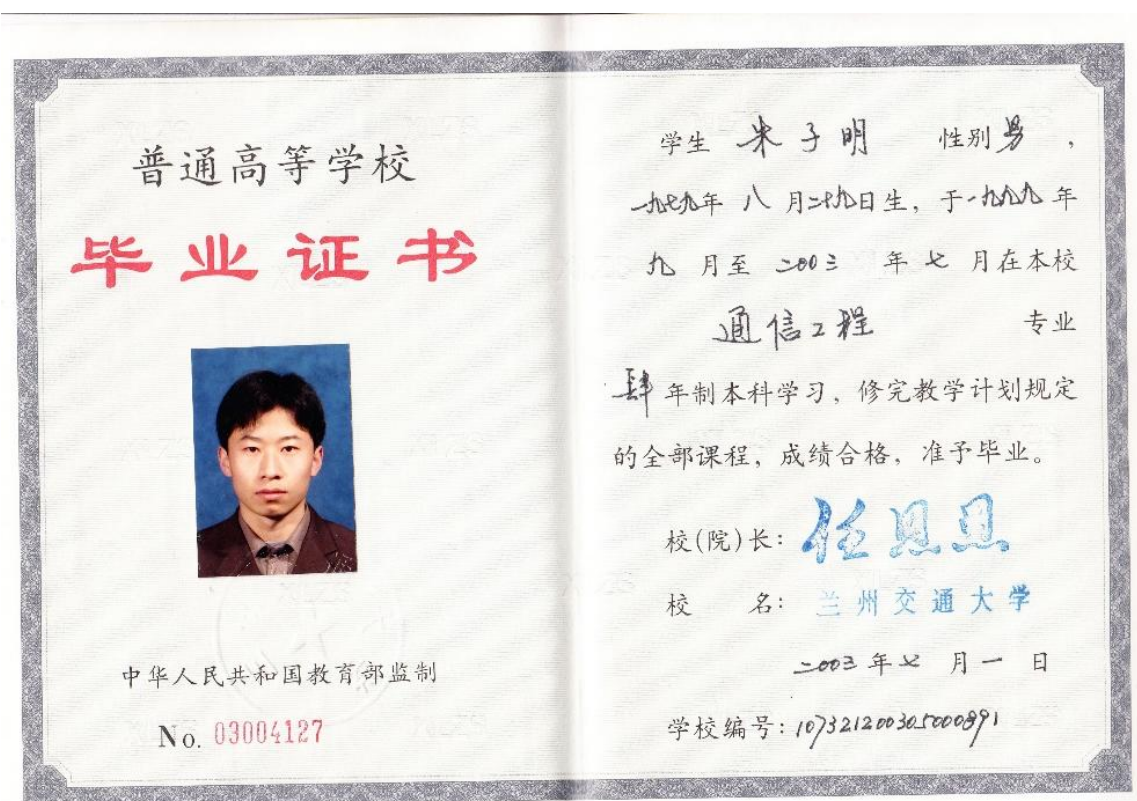 普通高等学校
毕业证书
中华人民共和国教育部监制
No. 03004127
学生 朱子明 性别 男,
一九七九年 八 月二十九日生,于一九九九年
九 月至 二00三 年 七 月在本校
通信工程 专业
肆 年制本科学习,修完教学计划规定
的全部课程,成绩合格,准予毕业。
校(院)长: 任恩恩
校 名: 兰州交通大学
二00三年七月一日
学校编号:107321200305000891